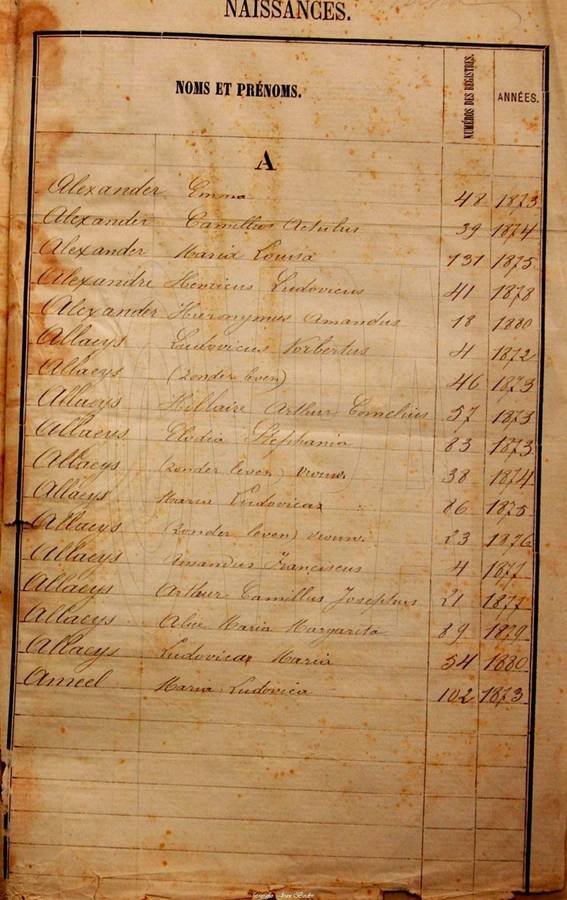 NAISSANCES.
NOMS ET PRÉNOMS. NUMÉROS DES REGISTRES. ANNÉES.
A
Alexander Emma 48 1873
Alexander Camillus Achilus 39 1874
Alexander Maria Louisa 131 1875
Alexandre Henricus Ludovicus 41 1878
Alexander Hieronymus Amandus 18 1880
Allaeys Ludovicus Norbertus 4 1872
Allaeys (zonder leven) 46 1873
Allaeys Hillaire Arthur Cornelius 57 1873
Allaeys Elodia Stephania 83 1873
Allaeys (zonder leven) vrouw. 38 1874
Allaeys Maria Ludovica 86 1875
Allaeys (zonder leven) vrouw. 23 1876
Allaeys Amandus Franciscus 4 1877
Allaeys Arthur Camillus Josephus 21 1877
Allaeys Alice Maria Margarita 89 1879
Allaeys Ludovica Maria 54 1880
Ameel Maria Ludovica 102 1873